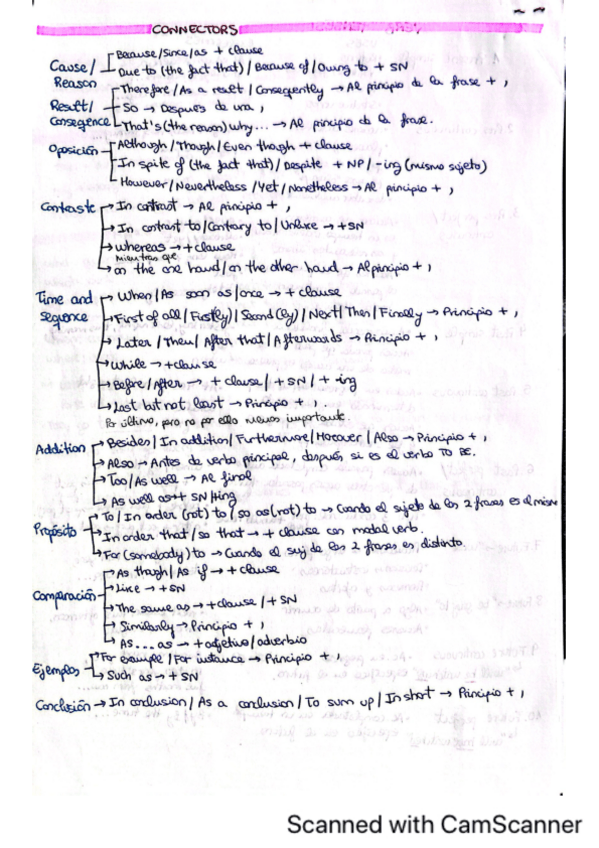 CONNECTORS
Cause/ Reason
Because/Since/as + clause
Due to (the fact that)/Because of/Owing to + SN
Result/ Conseqence
Therefore/As a result/Consequently → Al principio de la frase + ,
So → Después de una ,
That's (the reason) why... → Al principio de la frase.
Oposición
Although/Though/Even though + clause
In spite of (the fact that)/Despite + NP/-ing (mismo sujeto)
However/Nevertheless/Yet/Nonetheless → Al principio + ,
Contraste
In contrast → Al principio + ,
In contrast to/Contrary to/Unlike → +SN
whereas → + clause
mientras que
on the one hand/on the other hand → Al principio + ,
Time and seqence
When/As soon as/once → + clause
First of all/Firstly)/Second(ly)/Next/Then/Finally → Principio + ,
Later/Then/After that/Afterwards → Principio + ,
While → +clause
Before/After → + clause/+SN/+ -ing
Last but not least → Principio + ,
Por último, pero no por ello menos importante.
Addition
Besides/In addition/Furthermore/Moreover/Also → Principio + ,
Also → Antes de verbo principal, después, si es el verbo TO BE.
Too/As well → Al final
As well as → + SN/+ing
Propósito
To/In order (not) to/so as (not) to → Cuando el sujeto de las 2 frases es el mismo
In order that/so that → + clause con modal verb.
For (somebody) to → Cuando el suj de las 2 frases es distinto.
Comparación
As though/As if → + clause
Like → +SN
The same as → +clause/+SN
Similarly → Principio + ,
AS...as → +adjetivo/adverbio
Ejemplos
For example/For instance → Principio + ,
Such as → + SN
Conclusión → In conclusion/As a conclusion/To sum up/In short → Principio + ,
Scanned with CamScanner